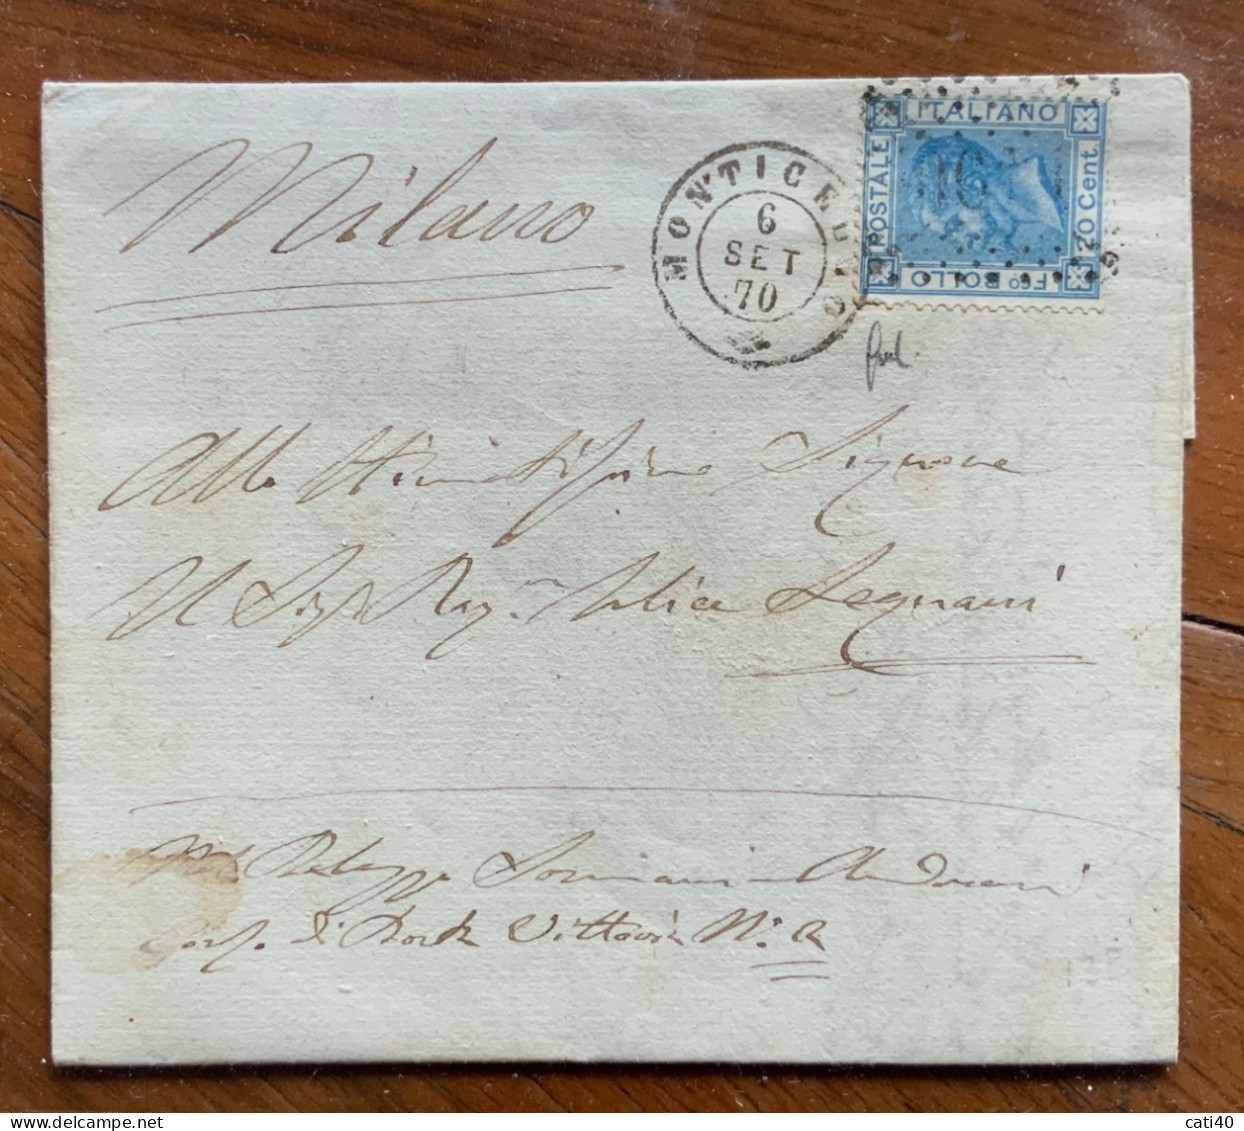 Milano
MONTICELLO
6
SET
70
ITALIANO
POSTALE
20 Cent.
Fco BOLLO
Allo Stimatissimo Signore
Il Sigr Rag. Felice Legnani
Palazzo Sormani Andreani
Corso di Porta Vittoria N. 2
cati40